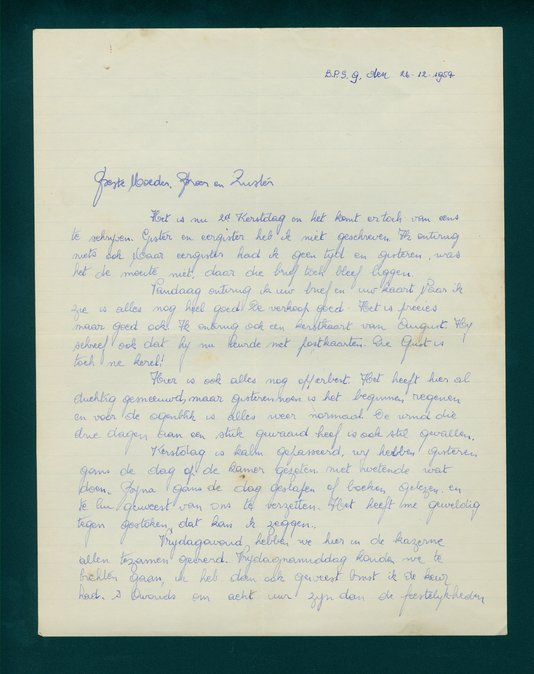 B.P.S. 9. den 26-12-1957
Beste Moeder, Broer en Zuster
Het is nu 2de Kerstdag en het komt er toch van eens
te schrijven. Gister en eergister heb ik niet geschreven. Ik ontving
niets ook. Maar eergister had ik geen tijd en gisteren, was
het de moeite niet, daar die brief toch bleef liggen.
Vandaag ontving ik uw brief en uw kaart, Naar ik
zie is alles nog heel goed. De verkoop goed. Het is precies
maar goed ook. Ik ontving ook een kerstkaart van August. Hij
schreef ook dat hij nu leurde met postkaarten. Die Gust is
toch ne kerel!
Hier is ook alles nog opperbest. Het heeft hier al
duchtig gesneeuwd, maar gisterennoen is het beginnen regenen
en voor de ogenblik is alles weer normaal. De wind die
drie dagen aan een stuk gewaaid heef is ook stil gevallen.
Kerstdag is kalm gepasseerd, wij hebben gisteren
gans de dag op de kamer gezeten niet wetende wat
doen. Bijna gans de dag geslapen of boeken gelezen en
te lui geweest van ons te verzetten. Het heeft me geweldig
tegen gestoken, dat kan ik zeggen.
Vrijdagavond, hebben we hier in de kazerne
allen tezamen gevierd. Vrijdagnamiddag konden we te
biechten gaan, ik heb dan ook geweest
had. 's Avonds om acht uur zijn dan de feestelijkheden